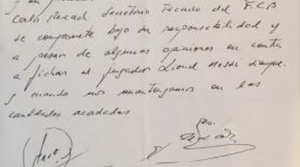 Carlo Rexach, Secretario Técnico del F.C.B
se compromete bajo su responsabilidad y
a pesar de algunas opiniones en contra
a fichar al jugador Lionel Messi siempre
y cuando nos mantengamos en las
cantidades acordadas